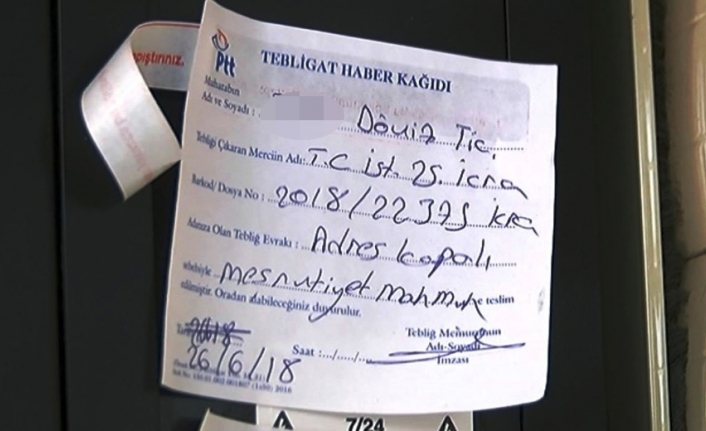 apıştırınız.
Ptt
TEBLİGAT HABER KAĞIDI
Muhatabın
Adı ve Soyadı : Döviz Tic.
Tebligi Çıkaran Merciin Adı: T.C ist. 25. icra
Barkod/ Dosya No : 2018/22375 icra
Adınıza Olan Tebliğ Evrakı : Adres kapalı
sebebiyle mesrutiyet mahmuh e teslim
edilmiştir. Oradan alabileceğiniz duyurulur.
Tebliğ Memurunun
Adı-Soyadı
İmzası
Saat :.../.../...
26/6/18
7/24